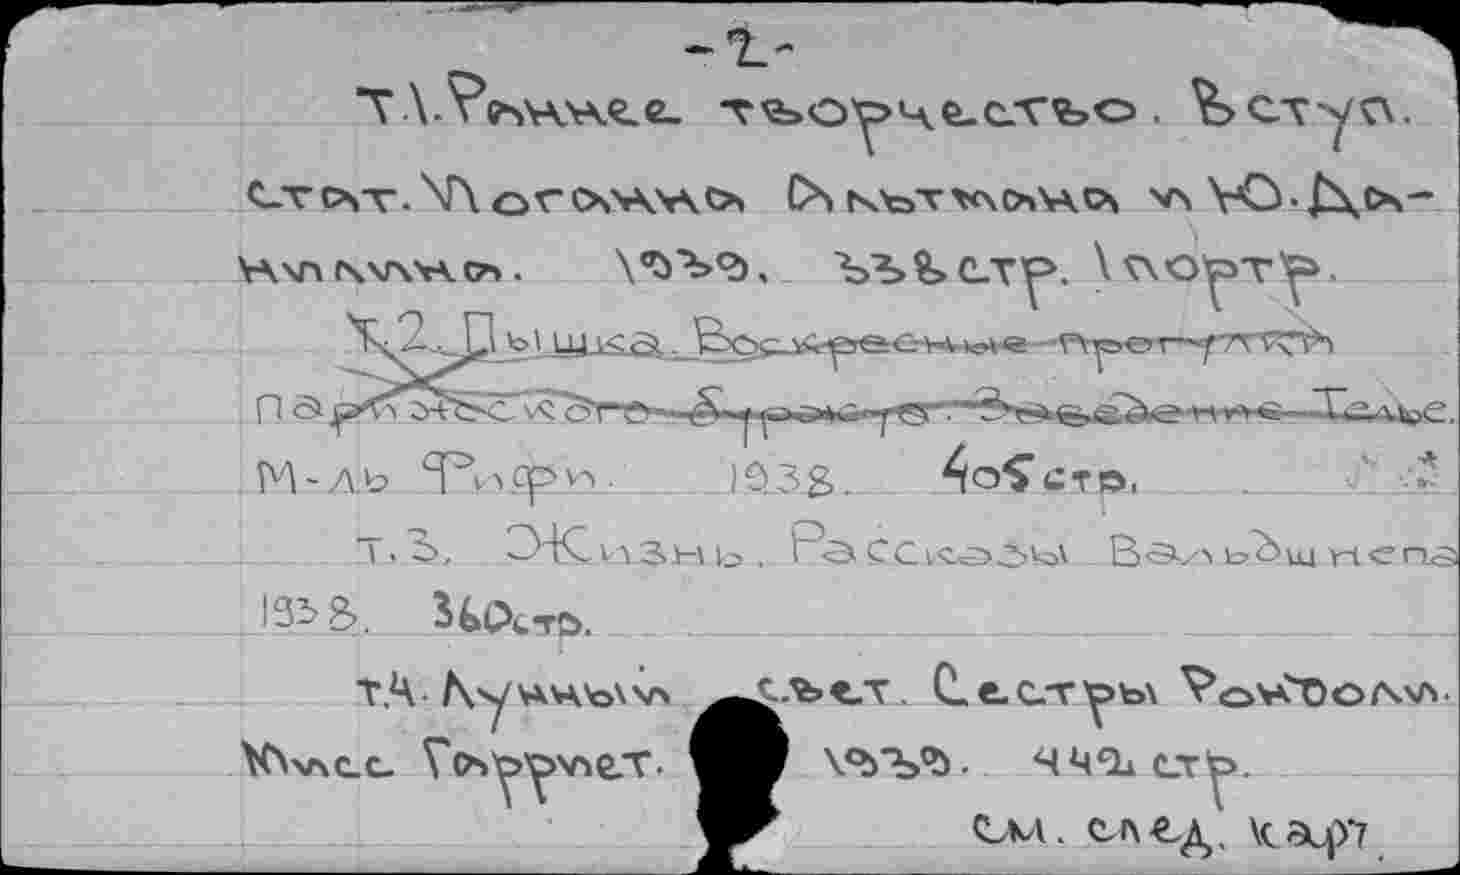 -2-
Т.1. Раннее творчество. Вступ.
стат. Иоганна Альтмана и Ю. Да-
нилина. 1939, 333 стр. 1 портр.
Т.2. Пышка. Воскресные прогулки
парижского буржуа. Заведение Телье.
М-ль Фифи. 1938. 405 стр.
т.3. Жизнь. Рассказы Вальдшнепа
1938. 360 стр.
т.4. Лунный свет. Сестры Рондоли.
Мисс Гарриет. 1939. 442 стр.
См. след. карт.